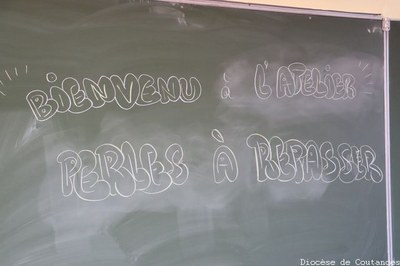 BIENVENU à L'ATELIER
PERLES À REPASSER
Diocèse de Coutances